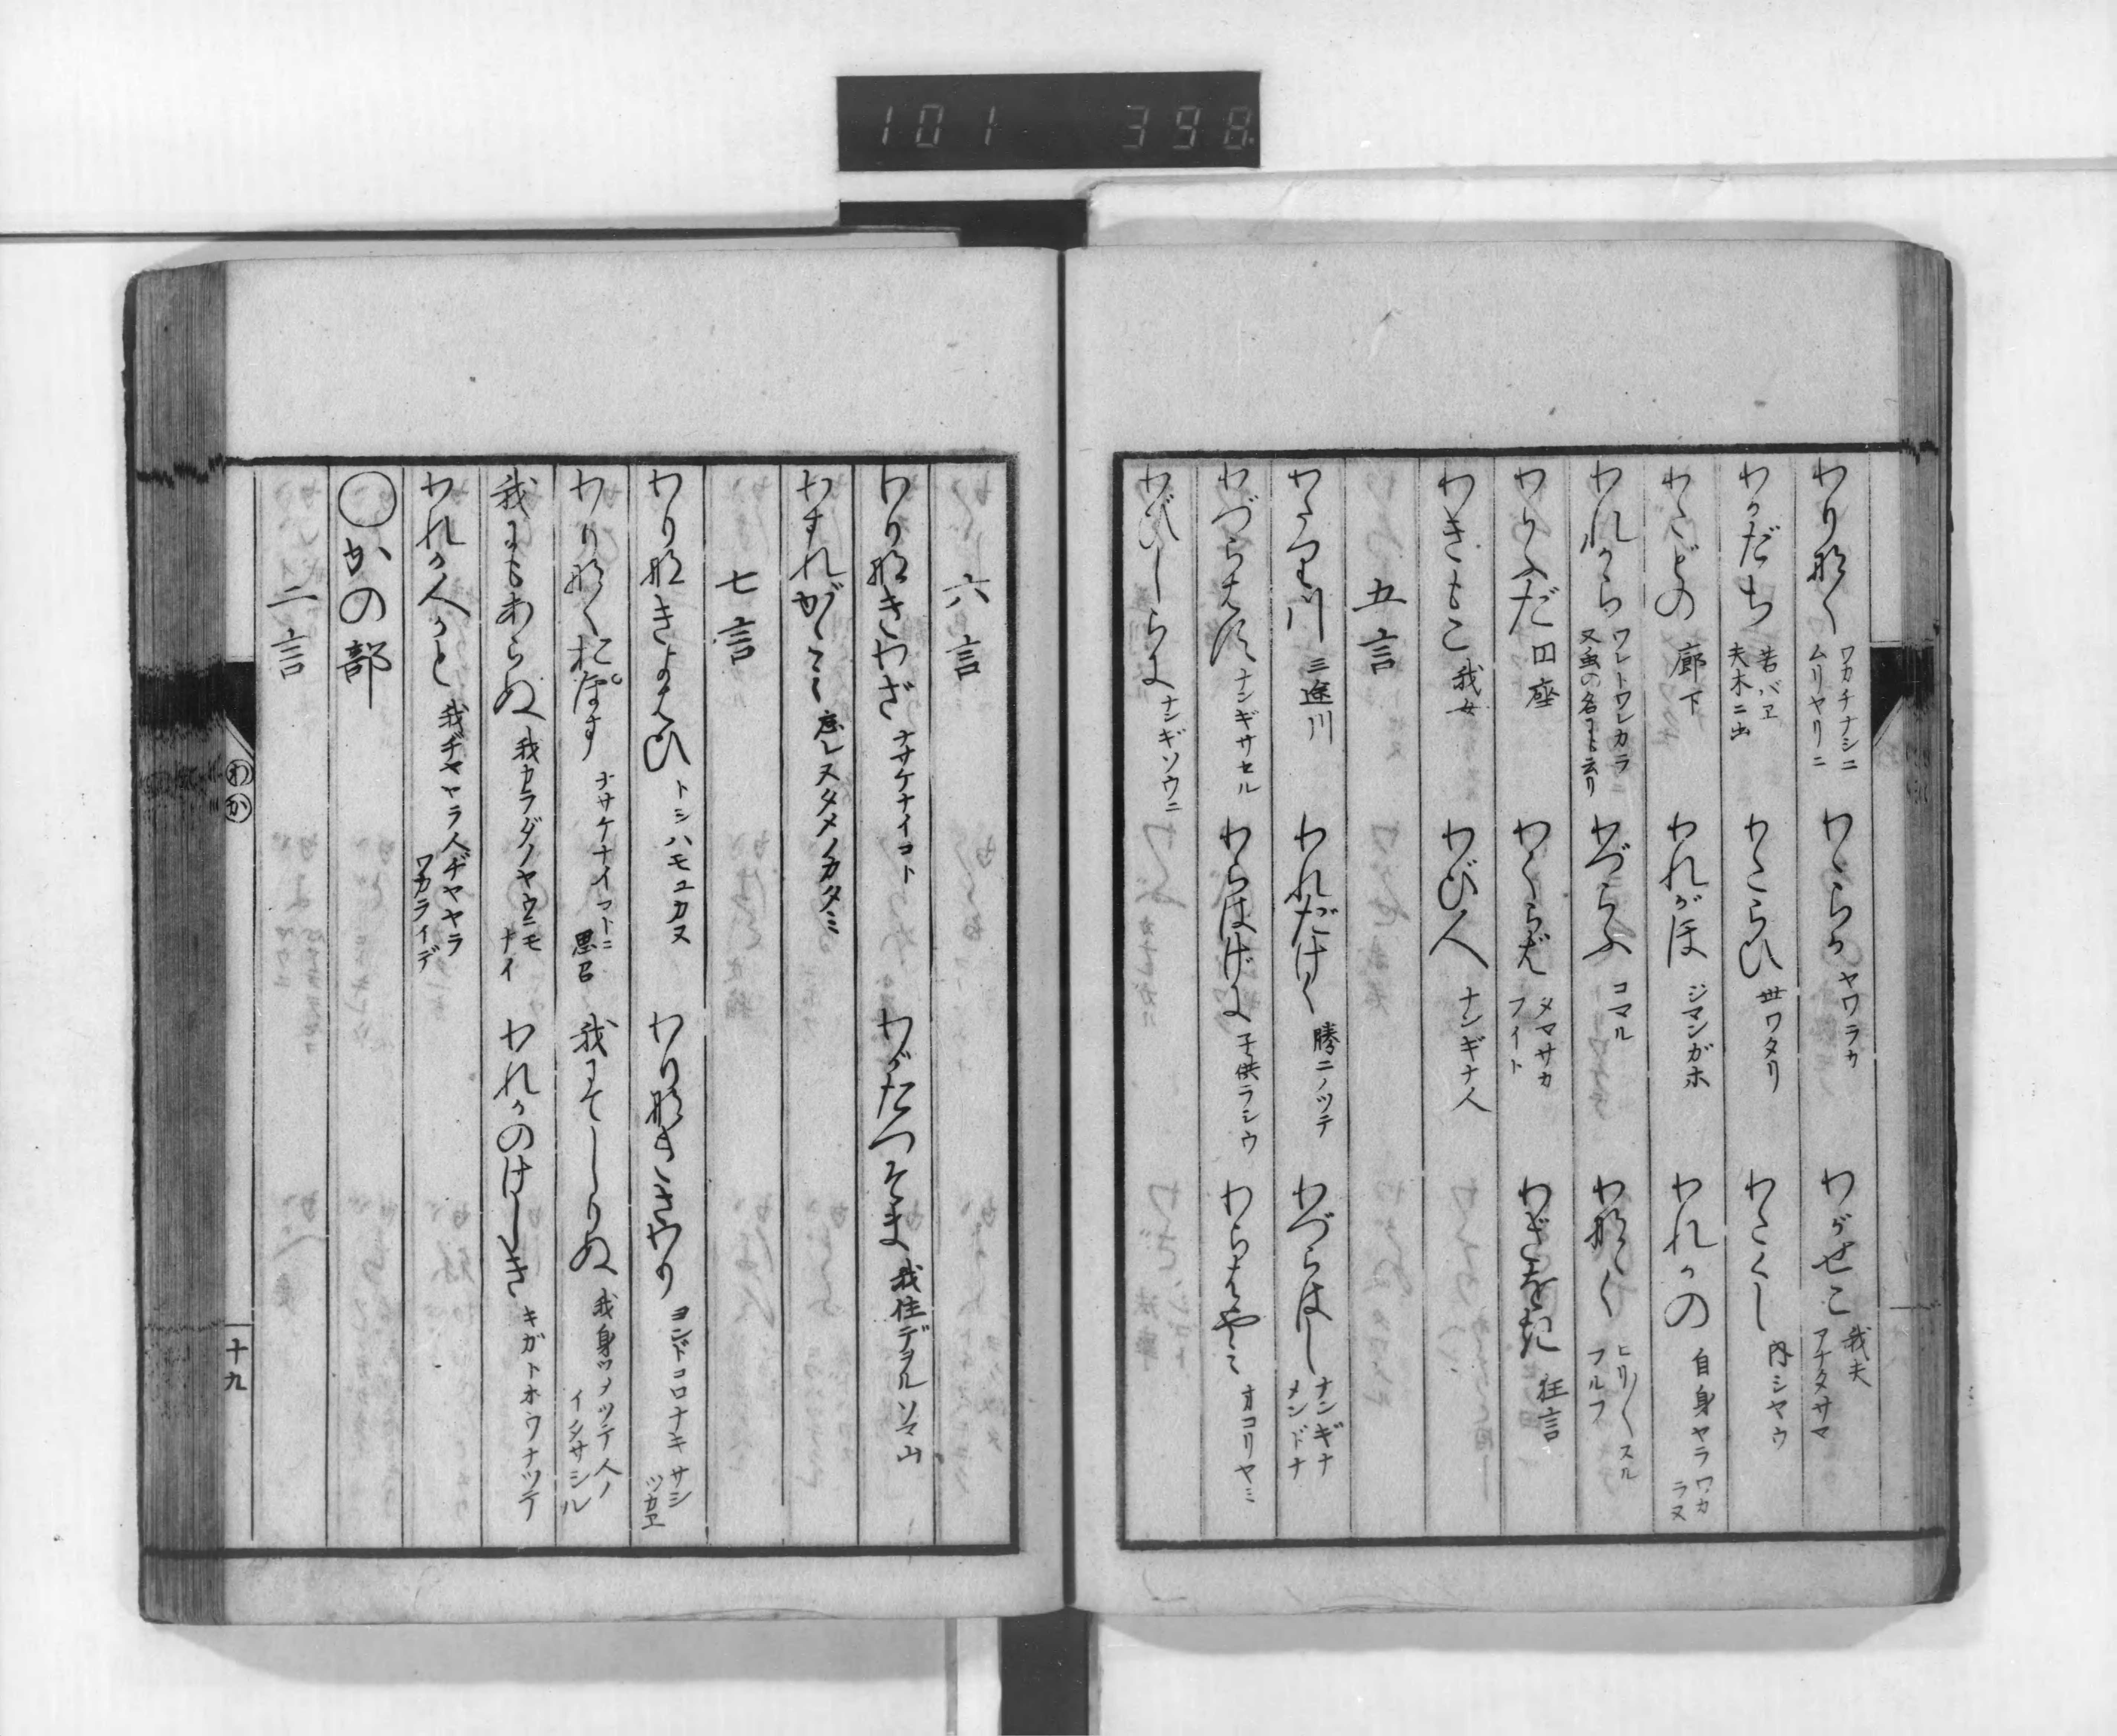 101 398
わり那く ワカチナシニ ムリヤリニ わゝらか ヤワラカ わがせこ 我夫 アナタサマ
わかだち 若バヱ 夫木ニ出 わたらひ 世ワタリ わたくし 内シヤウ
わたどの 廊下 われがほ ジマンガホ われかの 自身ヤラワカラヌ
われから ワレトワレカラ 又虫の名にも云り わづらふ コマル わ那ゝく ヒリ〳〵スル フルフ
わらふだ 囗座 わくらば メマサカ フイト わざをき 狂言
わきもこ 我女 わび人 ナンギナ人
五言
わたり川 三途川 われだけく 勝ニノツテ わづらはし ナンギナ メンドナ
わづらはす ナンギサセル わらはげに 子供ラシウ わらはやみ オコリヤミ
わびしらに ナンギソウニ
六言
わり那きわざ ナサケナイコト わがたつそま 我住デヲルソマ山
わすれがたみ 忘レヌタメノカタミ
七言
わり那きよはひ トシハモユカヌ わり那きさきやり ヨンドコロナキサシツカヱ
わり那くおぼす ナサケナイコトニ思召 我にてしりぬ 我身ツメツテ人ノイタサシル
我にもあらぬ 我カラダノヤウニモナイ われかのけしき キガトオウナツテ
われか人かと 我ヂヤヤラ人ヂヤヤラワカライデ
○かの部
二言
わ か
十九